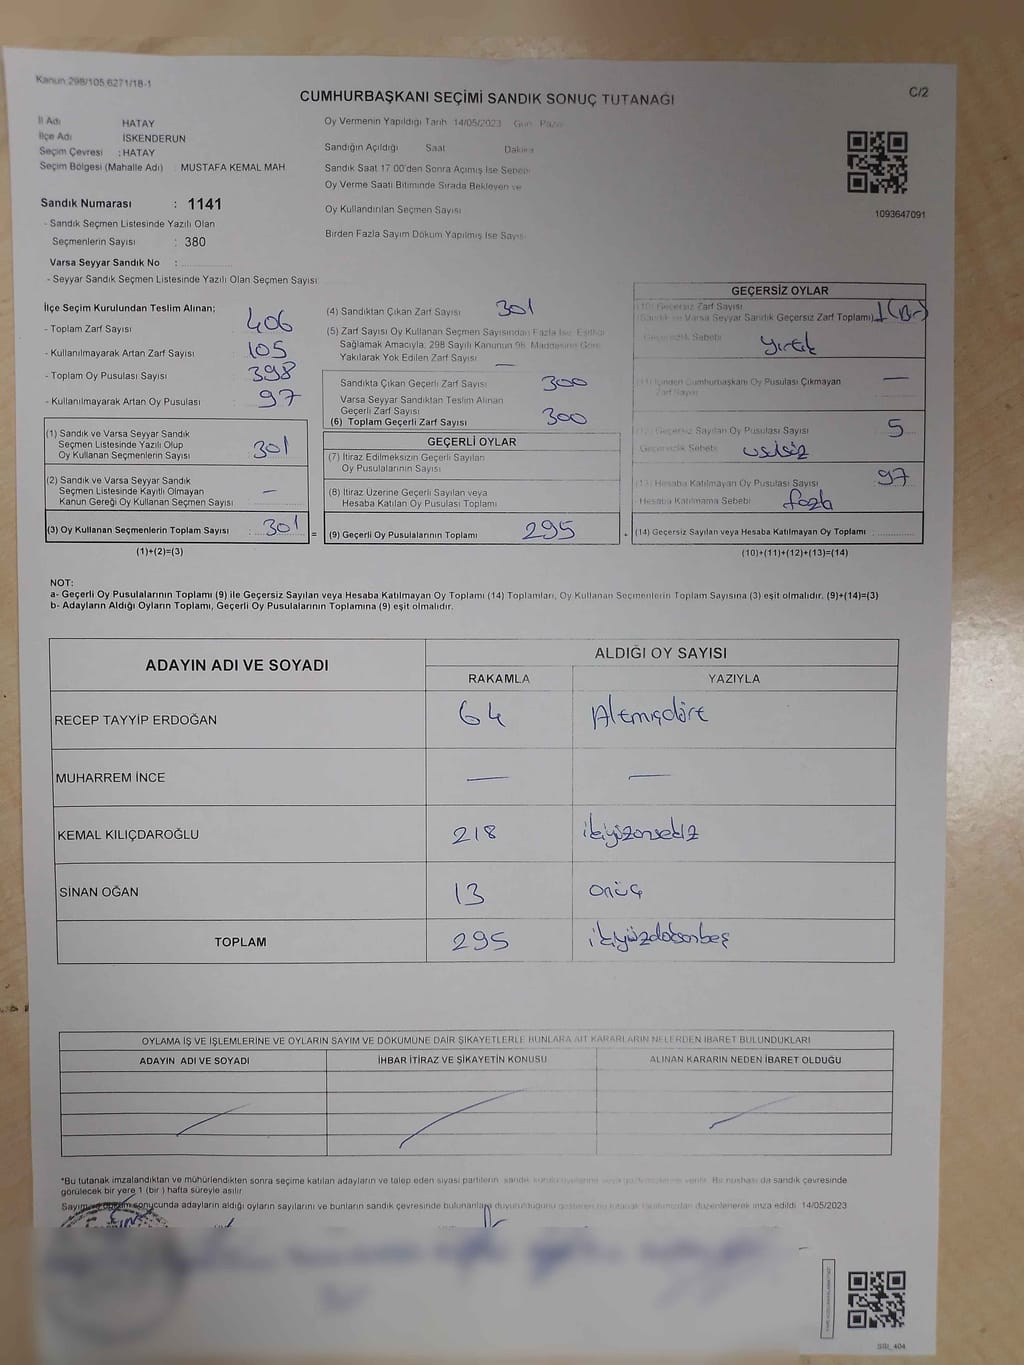 Kanun 298/105,6271/18-1
C/2
CUMHURBAŞKANI SEÇİMİ SANDIK SONUÇ TUTANAĞI
İl Adı HATAY
İlçe Adı İSKENDERUN
Seçim Çevresi : HATAY
Seçim Bölgesi (Mahalle Adı) : MUSTAFA KEMAL MAH
Sandık Numarası : 1141
- Sandık Seçmen Listesinde Yazılı Olan
Seçmenlerin Sayısı : 380
Varsa Seyyar Sandık No :
- Seyyar Sandık Seçmen Listesinde Yazılı Olan Seçmen Sayısı
Oy Vermenin Yapıldığı Tarih 14/05/2023 Gün Pazar
Sandığın Açıldığı Saat Dakika
Sandık Saat 17:00'den Sonra Açılmış İse Sebebi
Oy Verme Saati Bitiminde Sırada Bekleyen ve
Oy Kullandırılan Seçmen Sayısı
Birden Fazla Sayım Döküm Yapılmış İse Sayısı
1093647091
İlçe Seçim Kurulundan Teslim Alınan;
- Toplam Zarf Sayısı 406
- Kullanılmayarak Artan Zarf Sayısı 105
- Toplam Oy Pusulası Sayısı 398
- Kullanılmayarak Artan Oy Pusulası 97
(1) Sandık ve Varsa Seyyar Sandık
Seçmen Listesinde Yazılı Olup
Oy Kullanan Seçmenlerin Sayısı 301
(2) Sandık ve Varsa Seyyar Sandık
Seçmen Listesinde Kayıtlı Olmayan
Kanun Gereği Oy Kullanan Seçmen Sayısı —
(3) Oy Kullanan Seçmenlerin Toplam Sayısı 301
(1)+(2)=(3)
(4) Sandıktan Çıkan Zarf Sayısı 301
(5) Zarf Sayısı Oy Kullanan Seçmen Sayısından Fazla İse, Eşitliği
Sağlamak Amacıyla; 298 Sayılı Kanunun 98. Maddesine Göre
Yakılarak Yok Edilen Zarf Sayısı —
Sandıkta Çıkan Geçerli Zarf Sayısı 300
Varsa Seyyar Sandıktan Teslim Alınan
Geçerli Zarf Sayısı
(6) Toplam Geçerli Zarf Sayısı 300
GEÇERLİ OYLAR
(7) İtiraz Edilmeksizin Geçerli Sayılan
Oy Pusulalarının Sayısı
(8) İtiraz Üzerine Geçerli Sayılan veya
Hesaba Katılan Oy Pusulası Toplamı
= (9) Geçerli Oy Pusulalarının Toplamı 295
GEÇERSİZ OYLAR
(10) Geçersiz Zarf Sayısı
(Sandık ve Varsa Seyyar Sandık Geçersiz Zarf Toplamı) 1 (Bir)
Geçersizlik Sebebi yırtık
(11) İçinden Cumhurbaşkanı Oy Pusulası Çıkmayan
Zarf Sayısı —
(12) Geçersiz Sayılan Oy Pusulası Sayısı 5
Geçersizlik Sebebi usulsüz
(13) Hesaba Katılmayan Oy Pusulası Sayısı 97
Hesaba Katılmama Sebebi fazla
+ (14) Geçersiz Sayılan veya Hesaba Katılmayan Oy Toplamı
(10)+(11)+(12)+(13)=(14)
NOT:
a- Geçerli Oy Pusulalarının Toplamı (9) ile Geçersiz Sayılan veya Hesaba Katılmayan Oy Toplamı (14) Toplamları, Oy Kullanan Seçmenlerin Toplam Sayısına (3) eşit olmalıdır. (9)+(14)=(3)
b- Adayların Aldığı Oyların Toplamı, Geçerli Oy Pusulalarının Toplamına (9) eşit olmalıdır.
ADAYIN ADI VE SOYADI ALDIĞI OY SAYISI
RAKAMLA YAZIYLA
RECEP TAYYİP ERDOĞAN 64 Altmışdört
MUHARREM İNCE — —
KEMAL KILIÇDAROĞLU 218 ikiyüzonsekiz
SİNAN OĞAN 13 onüç
TOPLAM 295 ikiyüzdoksanbeş
OYLAMA İŞ VE İŞLEMLERİNE VE OYLARIN SAYIM VE DÖKÜMÜNE DAİR ŞİKAYETLERLE BUNLARA AİT KARARLARIN NELERDEN İBARET BULUNDUKLARI
ADAYIN ADI VE SOYADI İHBAR İTİRAZ VE ŞİKAYETİN KONUSU ALINAN KARARIN NEDEN İBARET OLDUĞU
*Bu tutanak imzalandıktan ve mühürlendikten sonra seçime katılan adayların ve talep eden siyasi partilerin Bir nüshası da sandık çevresinde
görülecek bir yere 1 (bir) hafta süreyle asılır.
Sayım ve döküm sonucunda adayların aldığı oyların sayılarını ve bunların sandık çevresinde bulunanlara duyurulduğunu gösteren bu tutanak tarafımızdan düzenlenerek imza edildi. 14/05/2023
SSI_404